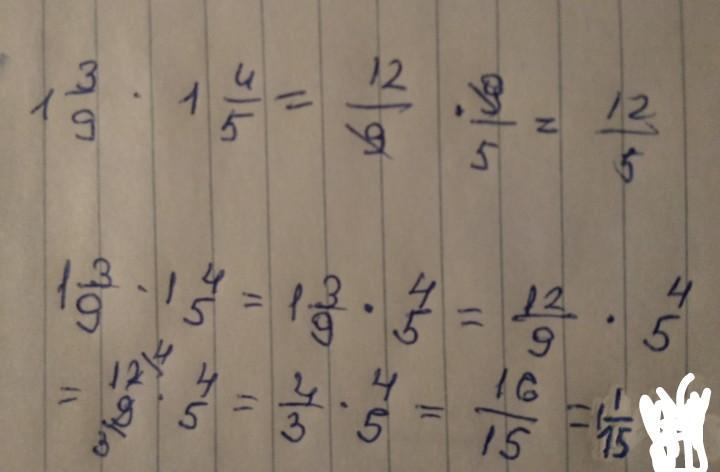 1 3/9 · 1 4/5 = 12/9 · 9/5 = 12/5
1 3/9 · 1 4/5 = 1 3/9 · 4/5 = 12/9 · 4/5
= 12/9 4/3 · 4/5 = 4/3 · 4/5 = 16/15 = 1 1/15